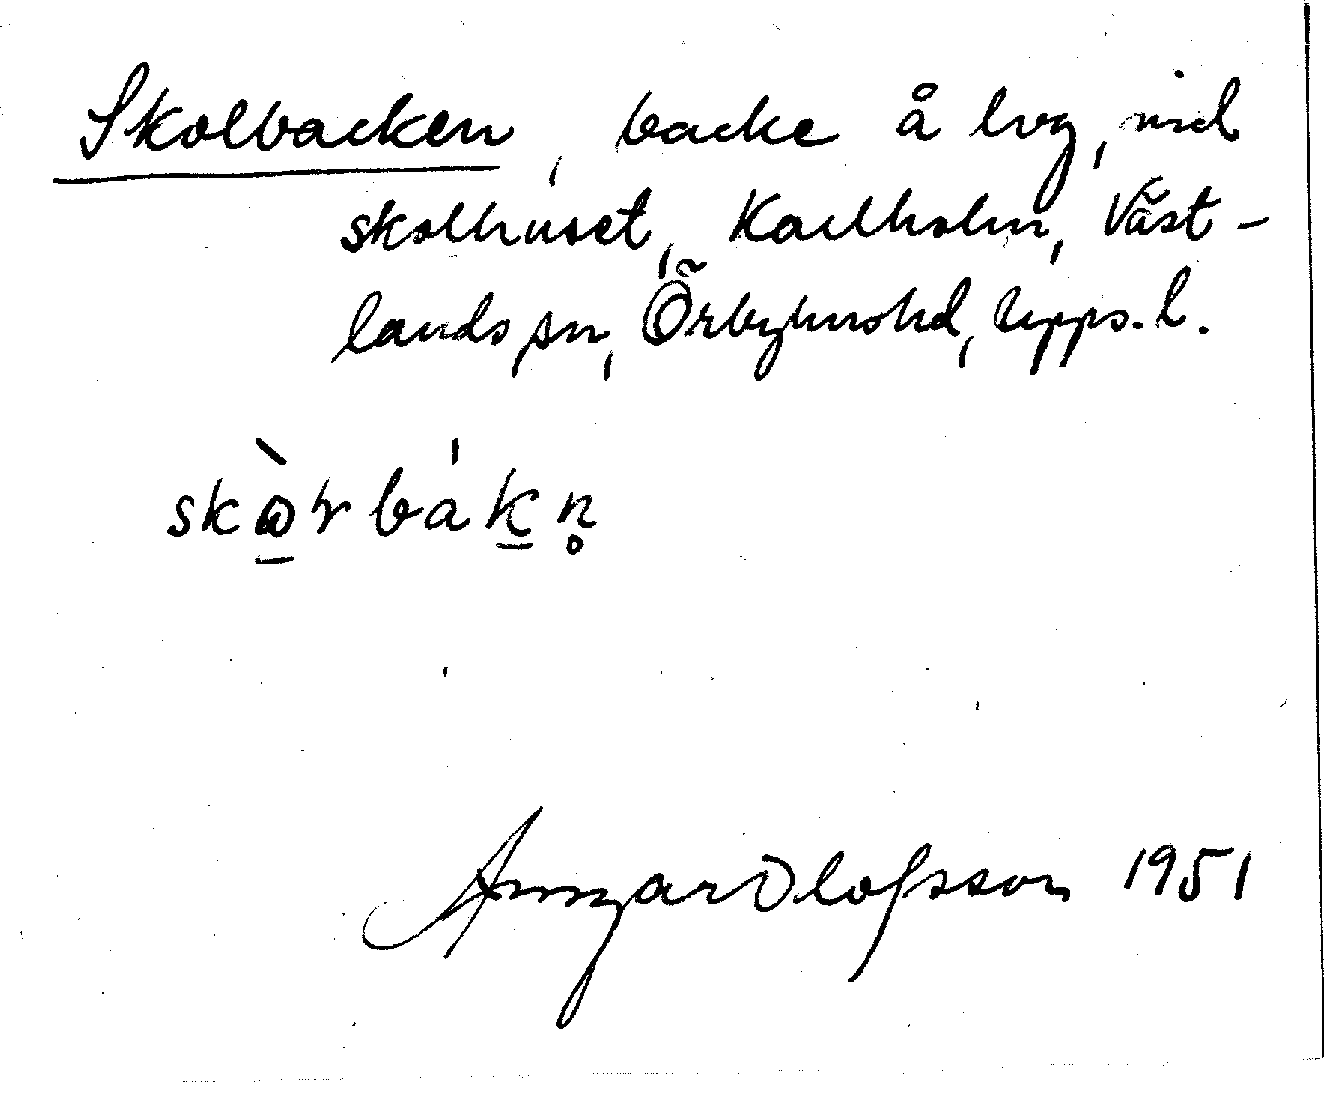 Skolbacken, backe å lvg, vid
skolhuset, Karlholm, Väst-
lands sn, Örbyhus hd, Upps. l.
skὼrbákn̥
Ansgar Olofsson 1951